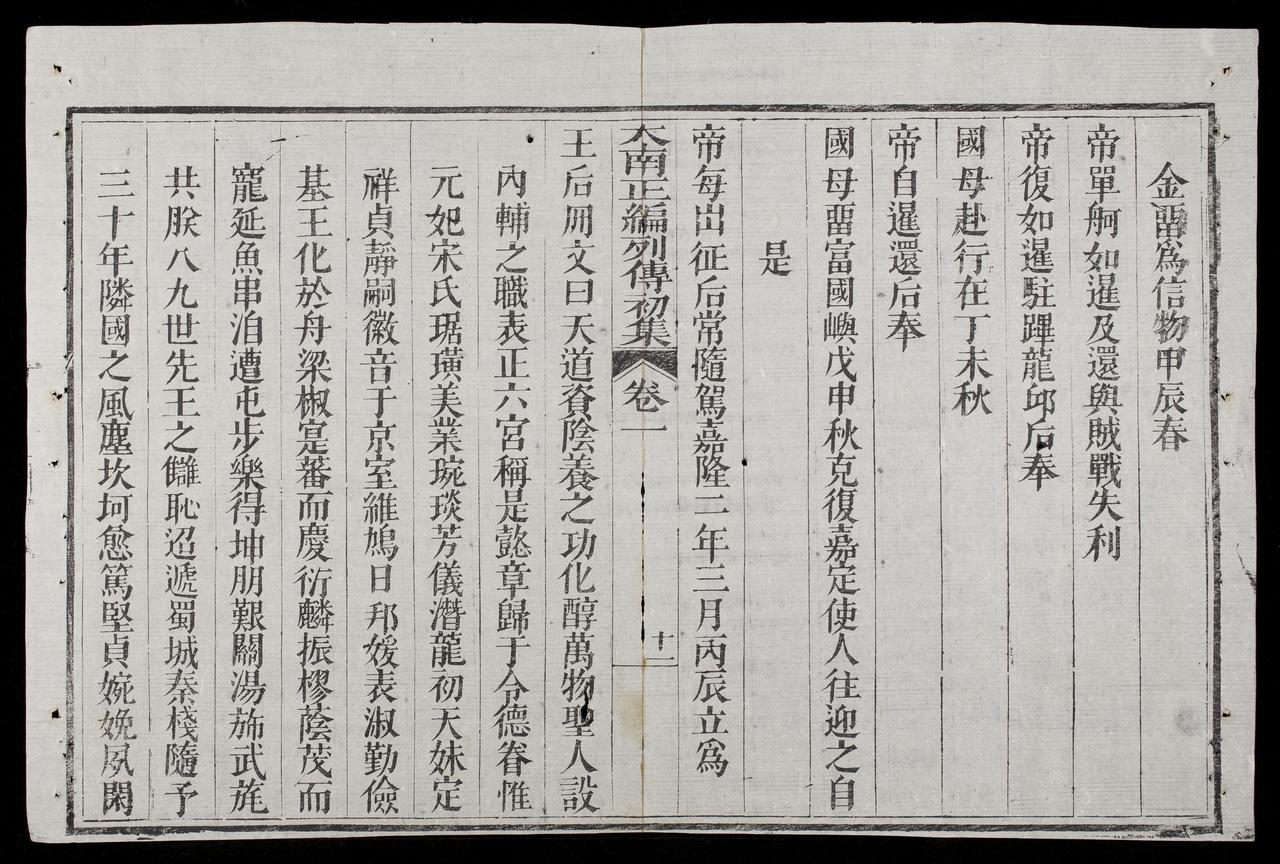 金畱爲信物甲辰春
帝單舸如暹及還與賊戰失利
帝復如暹駐蹕龍邱后奉
國母赴行在丁未秋
帝自暹還后奉
國母畱富國嶼戊申秋克復嘉定使人往迎之自
是
帝每出征后常隨駕嘉隆二年三月丙辰立爲
大南正編列傳初集 卷一 十二
王后冊文曰天道資陰養之功化醇萬物聖人設
內輔之職表正六宮稱是懿章歸于令德眷惟
元妃宋氏琚璜美業琬琰芳儀潛龍初天妹定
祥貞靜嗣徽音于京室維鳩日邦媛表淑勤儉
基王化於舟梁椒寔蕃而慶衍麟振樛蔭茂而
寵延魚串洎遭屯步樂得坤朋艱關湯斾武旄
共朕八九世先王之讎恥迢遞蜀城秦棧隨予
三十年隣國之風塵坎坷愈篤堅貞婉娩夙閑